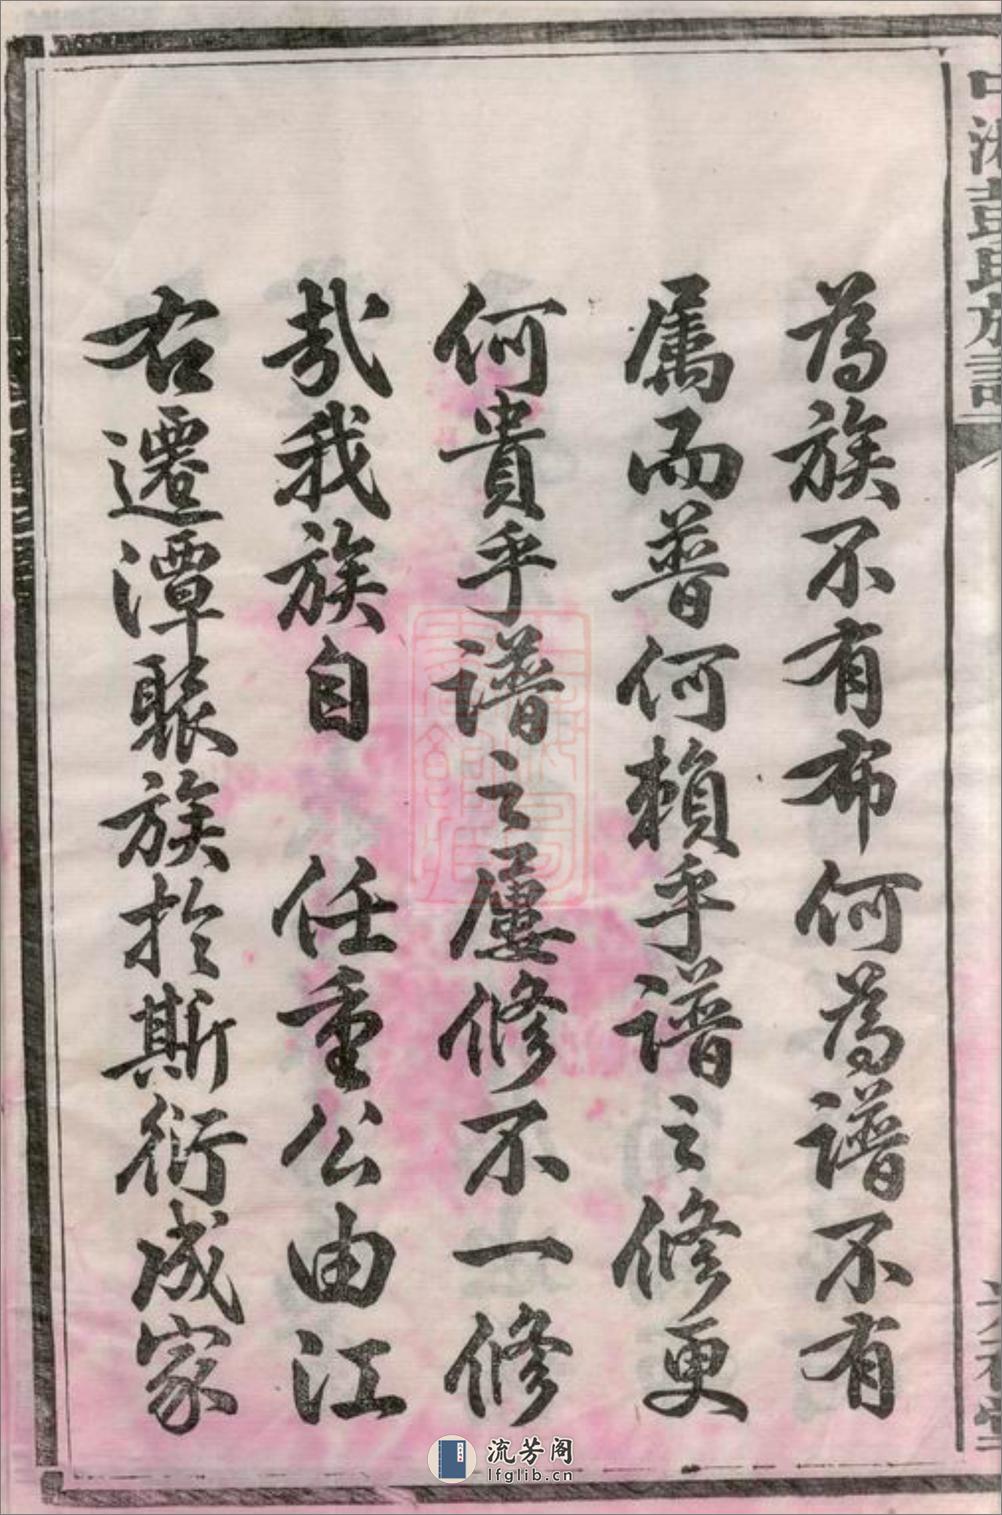 中湘彭氏族譜
光裕堂
為族不有布何為譜不有
属而普何賴乎譜之修更
何貴乎譜之屢修不一修
哉我族自 任重公由江
右遷潭眽族於斯衍成家
流芳阁
lfglib.cn